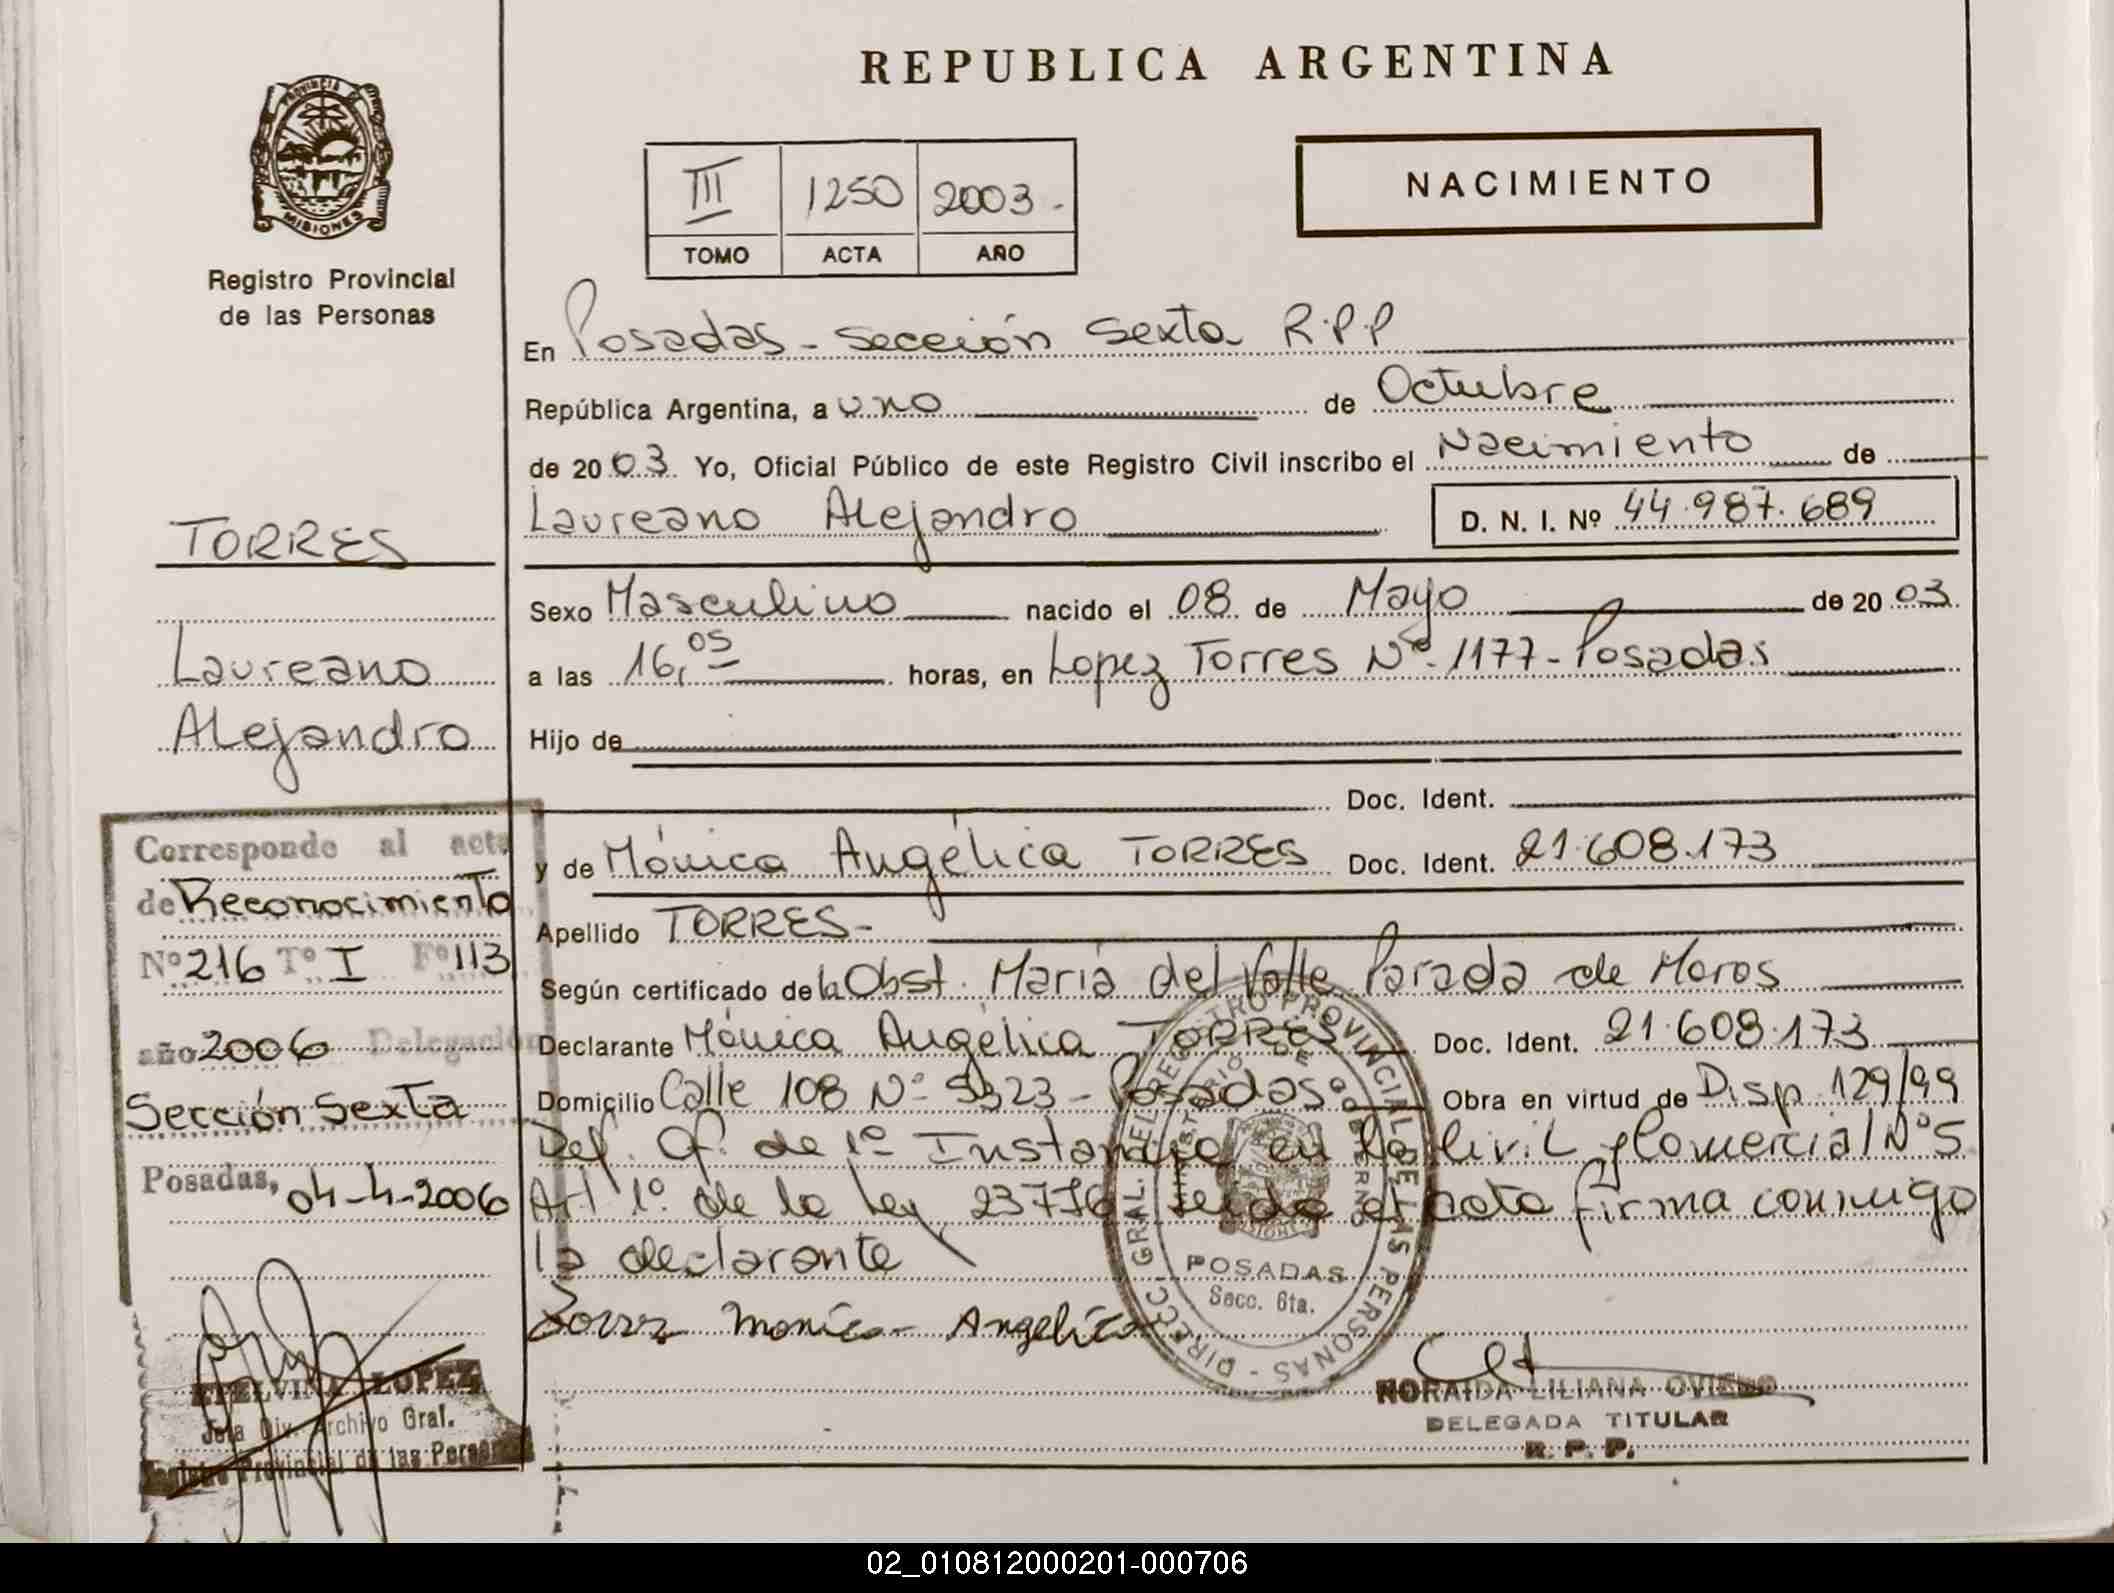 REPUBLICA ARGENTINA
PROVINCIA DE
MISIONES
Registro Provincial
de las Personas
III 1250 2003.-
TOMO ACTA AÑO
NACIMIENTO
En Posadas - Sección Sexta R.P.P
República Argentina, a uno de Octubre
de 2003 Yo, Oficial Público de este Registro Civil inscribo el Nacimiento de
Laureano Alejandro D. N. I. Nº 44.987.689
TORRES
Laureano
Alejandro
Sexo Masculino nacido el 08 de Mayo de 2003
a las 16,05 horas, en Lopez Torres Nº 1177 - Posadas
Hijo de
Doc. Ident.
y de Mónica Angélica TORRES Doc. Ident. 21.608.173
Apellido TORRES-
Según certificado de la Obst. María del Valle Parada de Moros
Declarante Mónica Angélica TORRES Doc. Ident. 21.608.173
Domicilio Calle 108 Nº 5323 - Posadas. Obra en virtud de Disp 129/99
Def. Of. de 1º Instancia en lo Civil y Comercial Nº 5
Art 1º de la Ley 23776 leida el acta firma conmigo
la declarante
Torrez Monica Angelica
Corresponde al acta
de Reconocimiento
Nº 216 Tº I Fº 113
año 2006 Delegación
Sección Sexta
Posadas, 04-4-2006
ETELVINA LOPEZ
Jefa Div. Archivo Gral.
Registro Provincial de las Personas
DIRECC. GRAL. DEL REGISTRO PROVINCIAL DE LAS PERSONAS -
MINISTERIO DE GOBIERNO
POSADAS
Secc. 6ta.
NORAIDA LILIANA OVIEDO
DELEGADA TITULAR
R. P. P.
02_010812000201-000706